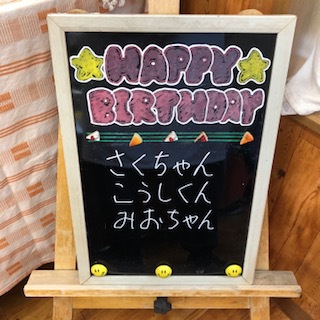 HAPPY
BIRTHDAY
さくちゃん
こうしくん
みおちゃん